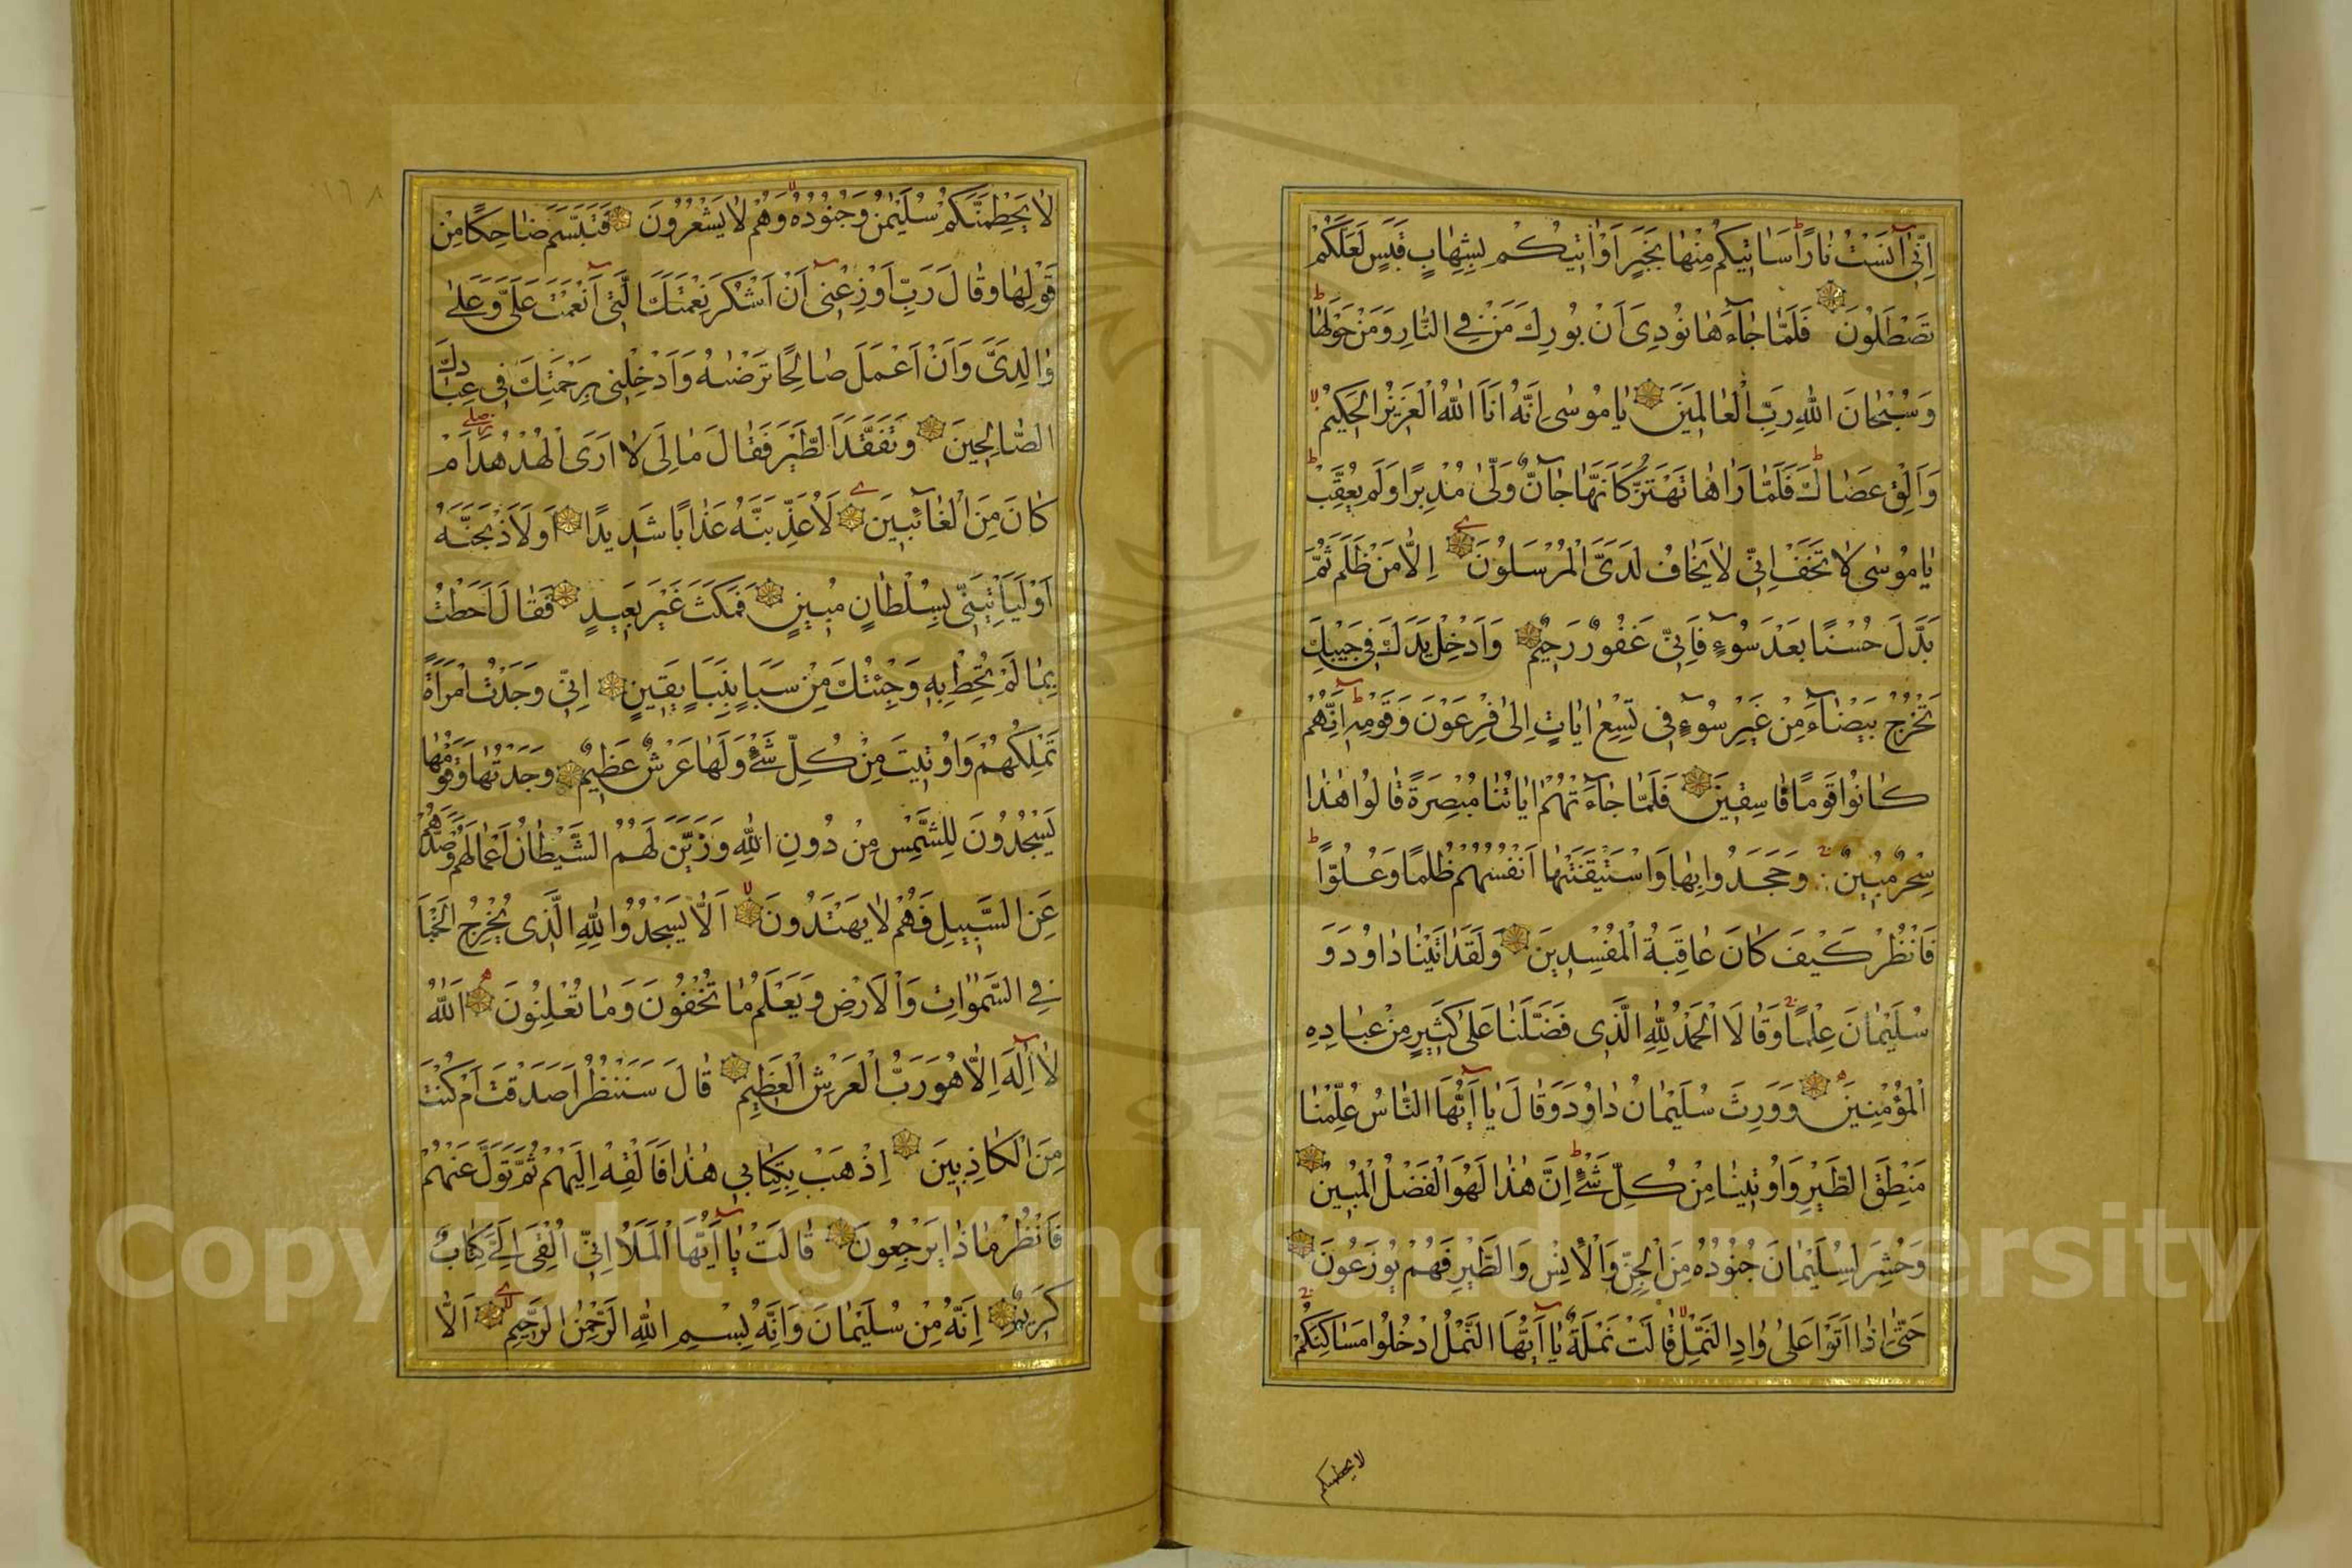 اِنّٖى اٰنَسْتُ نٰارًا سَاٰتيكُمْ مِنْهٰا بِخَبَرٍ اَوْ اٰتيكُمْ بِشِهٰابٍ قَبَسٍ لَعَلَّكُمْ
تَصْطَلُونَ فَلَمّٰا جٰآءَهٰا نُودِىَ اَنْ بُورِكَ مَنْ فِى النّٰارِ وَمَنْ حَوْلَهٰا
وَسُبْحٰانَ اللّٰهِ رَبِّ الْعٰالَمينَ يٰا مُوسٰى اِنَّهُ اَنَا اللّٰهُ الْعَزيزُ الْحَكيمُ
وَاَلْقِ عَصٰاكَ فَلَمّٰا رَاٰهٰا تَهْتَزُّ كَاَنَّهٰا جٰآنٌّ وَلّٰى مُدْبِرًا وَلَمْ يُعَقِّبْ
يٰا مُوسٰى لاٰ تَخَفْ اِنّى لاٰ يَخٰافُ لَدَىَّ الْمُرْسَلُونَ اِلاّٰ مَنْ ظَلَمَ ثُمَّ
بَدَّلَ حُسْنًا بَعْدَ سُوٓءٍ فَاِنّى غَفُورٌ رَحيمٌ وَاَدْخِلْ يَدَكَ فى جَيْبِكَ
تَخْرُجْ بَيْضٰآءَ مِنْ غَيْرِ سُوٓءٍ فى تِسْعِ اٰيٰاتٍ اِلٰى فِرْعَوْنَ وَقَوْمِهٖ اِنَّهُمْ
كٰانُوا قَوْمًا فٰاسِقينَ فَلَمّٰا جٰآءَتْهُمْ اٰيٰاتُنٰا مُبْصِرَةً قٰالُوا هٰذٰا
سِحْرٌ مُبينٌ وَجَحَدُوا بِهٰا وَاسْتَيْقَنَتْهٰا اَنْفُسُهُمْ ظُلْمًا وَعُلُوًّا
فَانْظُرْ كَيْفَ كٰانَ عٰاقِبَةُ الْمُفْسِدينَ وَلَقَدْ اٰتَيْنٰا دٰاوُدَ وَ
سُلَيْمٰانَ عِلْمًا وَقٰالاَ الْحَمْدُ لِلّٰهِ الَّذى فَضَّلَنٰا عَلٰى كَثيرٍ مِنْ عِبٰادِهِ
الْمُؤْمِنينَ وَوَرِثَ سُلَيْمٰانُ دٰاوُدَ وَقٰالَ يٰا اَيُّهَا النّٰاسُ عُلِّمْنٰا
مَنْطِقَ الطَّيْرِ وَاُوتينٰا مِنْ كُلِّ شَىْءٍ اِنَّ هٰذٰا لَهُوَ الْفَضْلُ الْمُبينُ
وَحُشِرَ لِسُلَيْمٰانَ جُنُودُهُ مِنَ الْجِنِّ وَالْاِنْسِ وَالطَّيْرِ فَهُمْ يُوزَعُونَ
حَتّٰى اِذٰا اَتَوْا عَلٰى وٰادِ النَّمْلِ قٰالَتْ نَمْلَةٌ يٰا اَيُّهَا النَّمْلُ ادْخُلُوا مَسٰاكِنَكُمْ
لا يحطمنكم
لاٰ يَحْطِمَنَّكُمْ سُلَيْمٰنُ وَجُنُودُهُ وَهُمْ لاٰ يَشْعُرُونَ فَتَبَسَّمَ ضٰاحِكًا مِنْ
قَوْلِهٰا وَقٰالَ رَبِّ اَوْزِعْنى اَنْ اَشْكُرَ نِعْمَتَكَ الَّتى اَنْعَمْتَ عَلَىَّ وَعَلٰى
وٰالِدَىَّ وَاَنْ اَعْمَلَ صٰالِحًا تَرْضٰيهُ وَاَدْخِلْنى بِرَحْمَتِكَ فى عِبٰادِكَ
الصّٰالِحينَ وَتَفَقَّدَ الطَّيْرَ فَقٰالَ مٰالِىَ لاٰ اَرَى الْهُدْهُدَ اَمْ
كٰانَ مِنَ الْغٰائِبينَ لَاُعَذِّبَنَّهُ عَذٰابًا شَديدًا اَوْ لَاَذْبَحَنَّهُ
اَوْ لَيَأْتِيَنّى بِسُلْطٰانٍ مُبينٍ فَمَكَثَ غَيْرَ بَعيدٍ فَقٰالَ اَحَطْتُ
بِمٰا لَمْ تُحِطْ بِهٖ وَجِئْتُكَ مِنْ سَبَاٍ بِنَبَاٍ يَقينٍ اِنّى وَجَدْتُ امْرَاَةً
تَمْلِكُهُمْ وَاُوتِيَتْ مِنْ كُلِّ شَىْءٍ وَلَهٰا عَرْشٌ عَظيمٌ وَجَدْتُهٰا وَقَوْمَهٰا
يَسْجُدُونَ لِلشَّمْسِ مِنْ دُونِ اللّٰهِ وَزَيَّنَ لَهُمُ الشَّيْطٰانُ اَعْمٰالَهُمْ فَصَدَّهُمْ
عَنِ السَّبيلِ فَهُمْ لاٰ يَهْتَدُونَ اَلاّٰ يَسْجُدُوا لِلّٰهِ الَّذى يُخْرِجُ الْخَبْاَ
فِى السَّمٰوٰاتِ وَالْاَرْضِ وَيَعْلَمُ مٰا تُخْفُونَ وَمٰا تُعْلِنُونَ اَللّٰهُ
لاٰ اِلٰهَ اِلاّٰ هُوَ رَبُّ الْعَرْشِ الْعَظيمِ قٰالَ سَنَنْظُرُ اَصَدَقْتَ اَمْ كُنْتَ
مِنَ الْكٰاذِبينَ اِذْهَبْ بِكِتٰابى هٰذٰا فَاَلْقِهْ اِلَيْهِمْ ثُمَّ تَوَلَّ عَنْهُمْ
فَانْظُرْ مٰاذٰا يَرْجِعُونَ قٰالَتْ يٰا اَيُّهَا الْمَلَاُ اِنّى اُلْقِىَ اِلَىَّ كِتٰابٌ
كَريمٌ اِنَّهُ مِنْ سُلَيْمٰانَ وَاِنَّهُ بِسْمِ اللّٰهِ الرَّحْمٰنِ الرَّحيمِ اَلاّٰ
Copyright © King Saud University